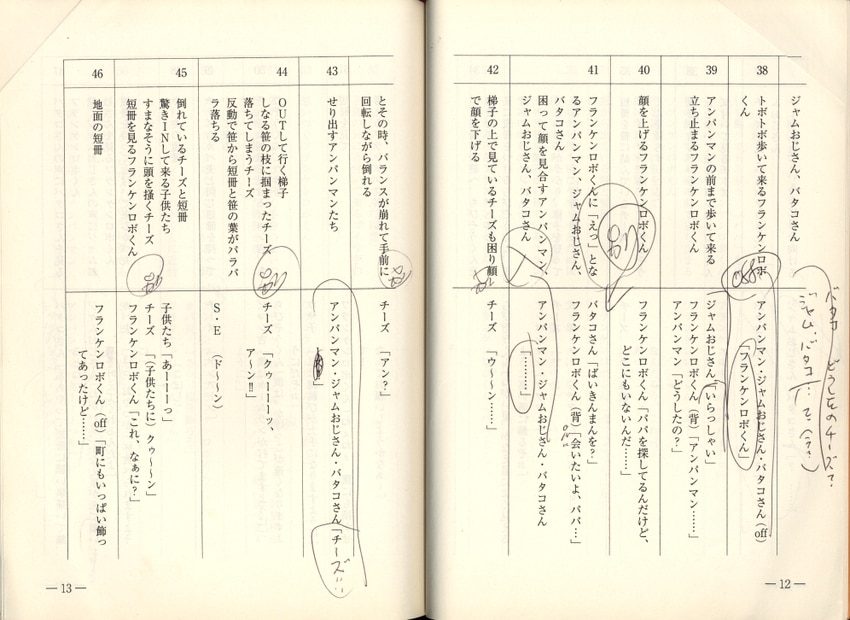 ジャムおじさん、バタコさん
38
トボトボ歩いて来るフランケンロボ
くん
off
アンパンマン・ジャムおじさん・バタコさん(off)
「フランケンロボくん」
39
アンパンマンの前まで歩いて来る
立ち止まるフランケンロボくん
ジャムおじさん「いらっしゃい」
フランケンロボくん(背)「アンパンマン……」
アンパンマン「どうしたの?」
40
顔を上げるフランケンロボくん
フランケンロボくん「パパを探してるんだけど、
どこにもいないんだ……」
別
41
フランケンロボくんに「えっ」とな
るアンパンマン、ジャムおじさん、
バタコさん
困って顔を見合すアンパンマン、
ジャムおじさん、バタコさん
バタコさん「ばいきんまんを?」
フランケンロボくん(背)「会いたいよ、パパ…」
アンパンマン・ジャムおじさん・バタコさん
「………」
42
梯子の上で見ているチーズも困り顔
で顔を下げる
別
チーズ 「ウ〜〜ン……」
バタコ どうしたのチーズ?
―12―
とその時、バランスが崩れて手前に
回転しながら倒れる
別
チーズ 「アン?」
43
せり出すアンパンマンたち
アンパンマン・ジャムおじさん・バタコさん「チーズ!!
」
44
OUTして行く梯子
しなる笹の枝に掴まったチーズ
落ちてしまうチーズ
反動で笹から短冊と笹の葉がバラバ
ラ落ちる
別
チーズ 「クゥーーーッ、
ア〜ン!!」
S・E (ド〜〜ン)
45
倒れているチーズと短冊
驚きINして来る子供たち
すまなそうに頭を掻くチーズ
短冊を見るフランケンロボくん
別
子供たち「あーーーっ」
チーズ 「(子供たちに)タゥ〜〜ン」
フランケンロボくん「これ、なぁに?」
46
地面の短冊
フランケンロボくん(off)「町にもいっぱい飾っ
てあったけど……」
―13―